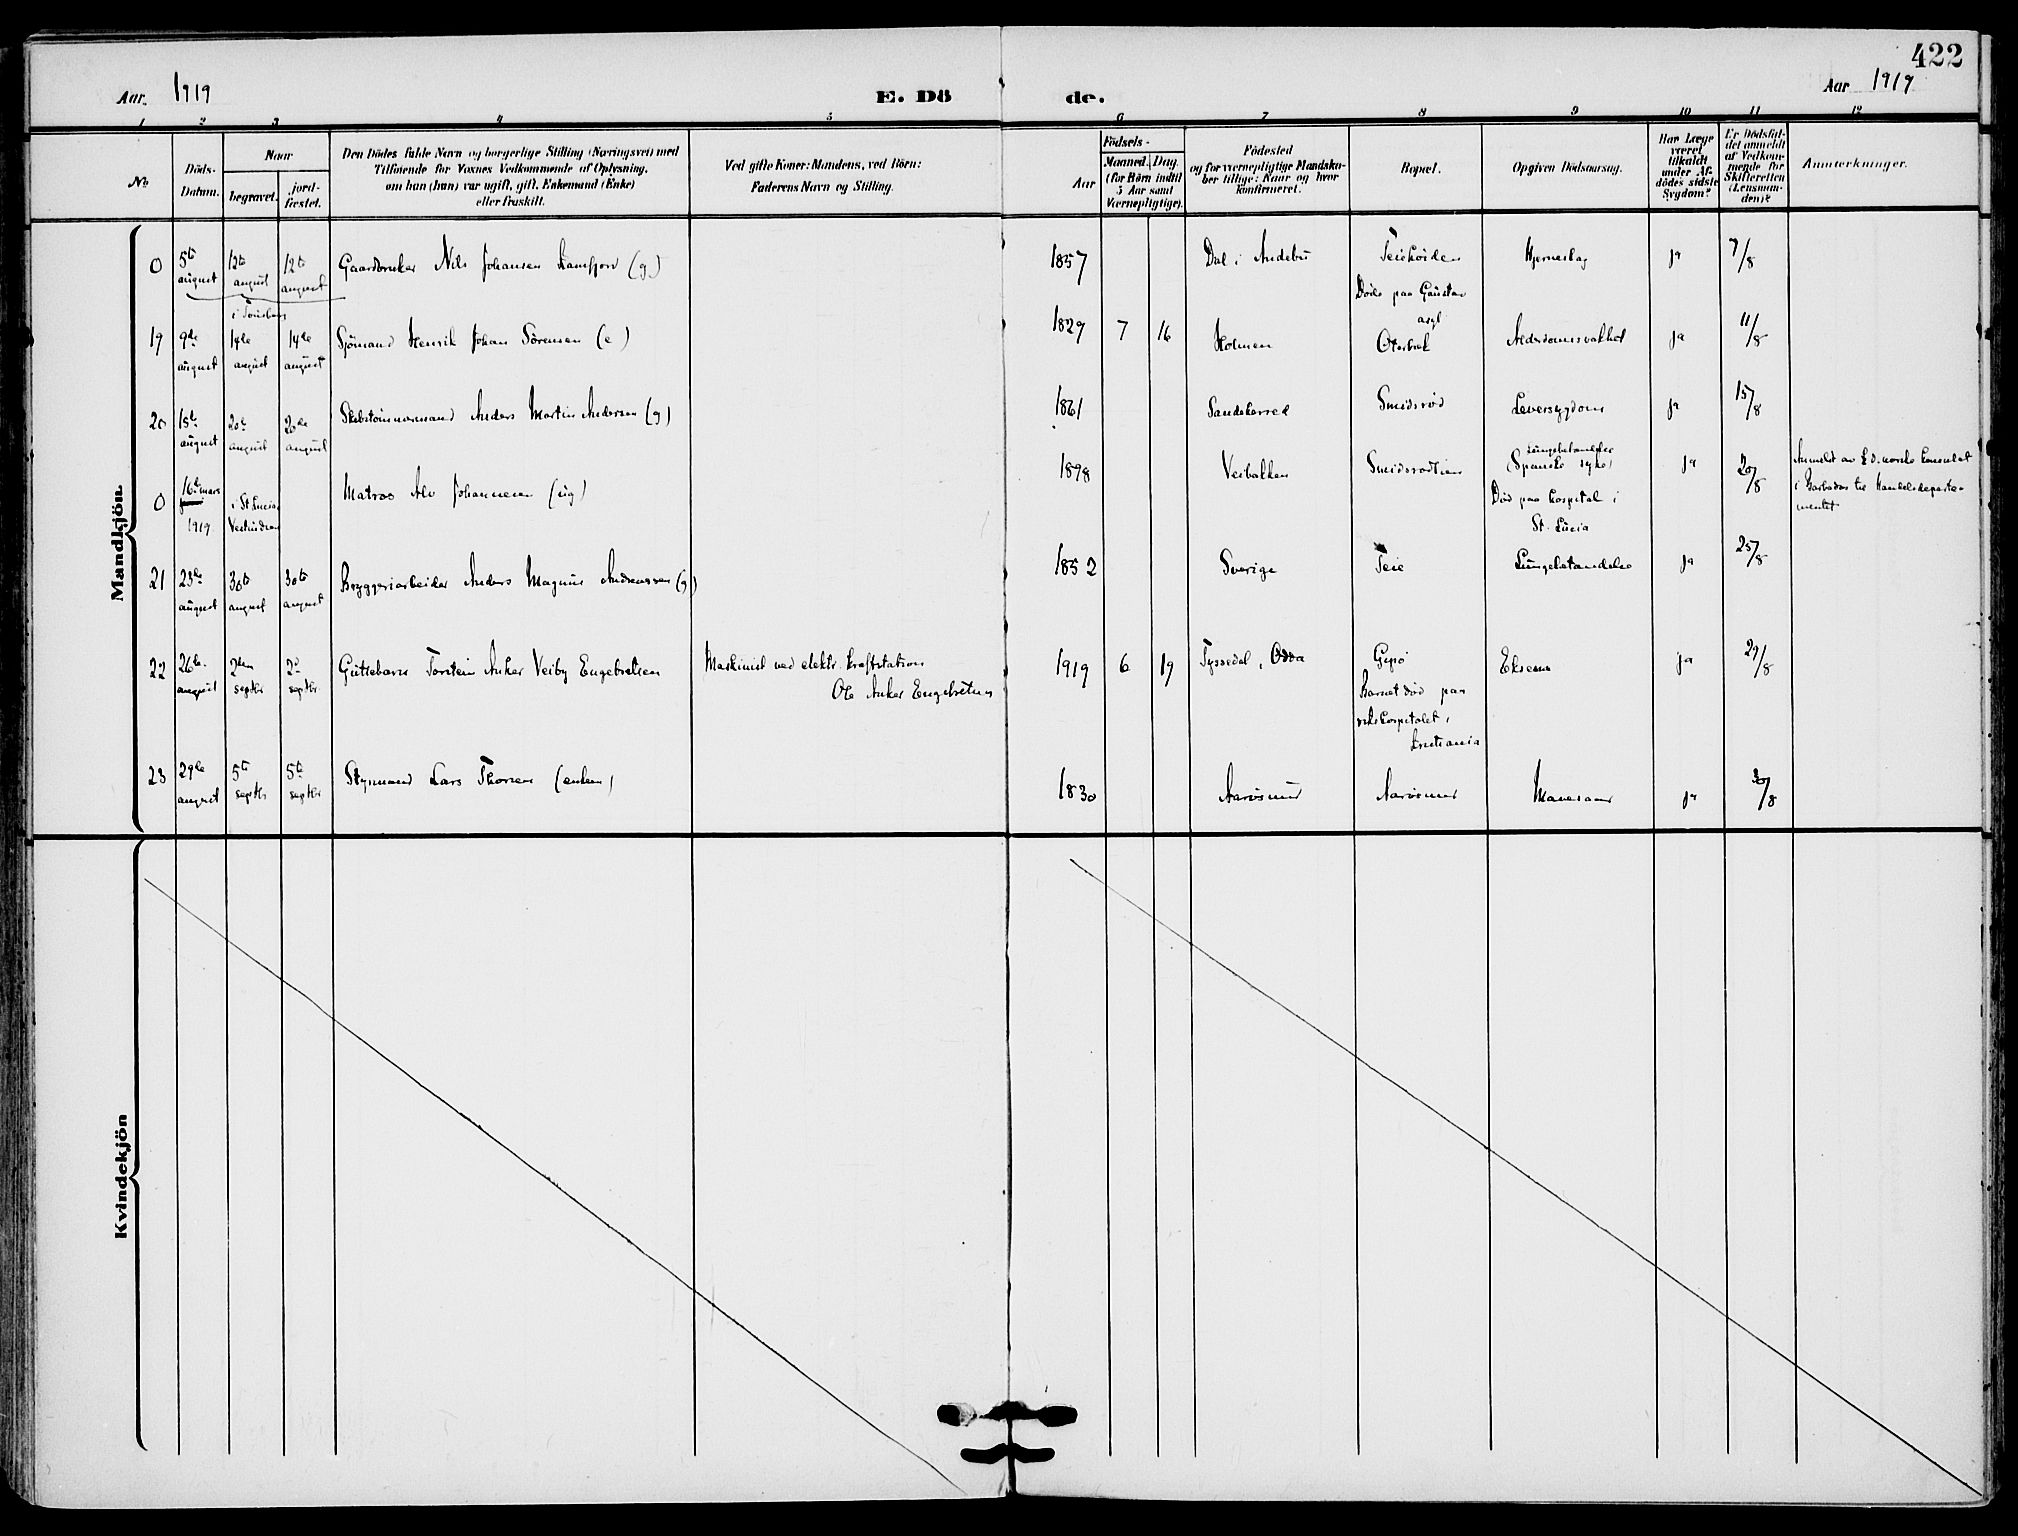 422
Aar. 1919
E. Döde.
Aar 1919
1 2 3 4 5 6 7 8 9 10 11 12
No.
Döds-
Datum.
Naar
begravet.
jord-
fæstet.
Den Dödes fulde Navn og borgerlige Stilling (Næringsvei) med
Tilföiende for Voxnes Vedkommende af Oplysning,
om han (hun) var ugift, gift, Enkemand (Enke)
eller fraskilt.
Ved gifte Koner: Mandens, ved Börn:
Faderens Navn og Stilling.
Födsels-
Aar
Maaned. Dag.
(for Börn indtil
5 Aar samt
Værnepligtige).
Födested
og for værnepligtige Mandska-
ber tillige: Naar og hvor
konfirmeret.
Bopæl.
Opgiven Dödsaarsag.
Har Læge
været
tilkaldt
under Af-
dödes sidste
Sygdom?
Er Dödsfal-
det anmeldt
af Vedkom-
mende for
Skifteretten
(Lensman-
den)?
Anmerkninger.
Mandkjön.
0 5te august 12te august 12te august Gaardbruker Nils Johansen Ramfjord (g.) 1857 Dal i Andebu Teiehöiden Hjerneslag ja 7/8
i Tönsberg
Döde paa Gaustad
asyl
19 9de august 14de august 14de august Sjömand Henrik Johan Sörensen (e) 1829 7 16 Holmen Oterbæk Alderdomssvakhet ja 11/8
20 15de august 20de august 20de august Skibstömmermand Anders Martin Andersen (g) 1861 Sandeherred Smidsröd Leversygdom ja 15/8
0 16de mars 1919 i St. Lucia Vestindien Matros Alv Johannesen (ug) 1898 Veibakken Smidsrödtien Lungebetændelse
(Spanske syke) ja 20/8 Anmeldt av d. norske konsulat
i Barbados til Handelsdeparte-
mentet
Död paa hospital i
St. Lucia
21 23de august 30te august 30te august Bryggeriarbeider Anders Magnus Andreassen (g) 1852 Sverige Teie Lungebetændelse ja 25/8
22 26de august 2den septbr 2den septbr Guttebarn Torstein Anker Veiby Engebretsen Maskinist ved elektr. kraftstation
Ole Anker Engebretsen 1919 6 19 Tyssedal, Odda Gipö Eksem ja 29/8
Barnet död paa
rikshospitalet i
Kristiania
23 29de august 5te septbr 5te septbr Styrmand Lars Thorsen (enkem) 1830 Aarösund Aarösund Mavesaar ja 30/8
Kvindekjön